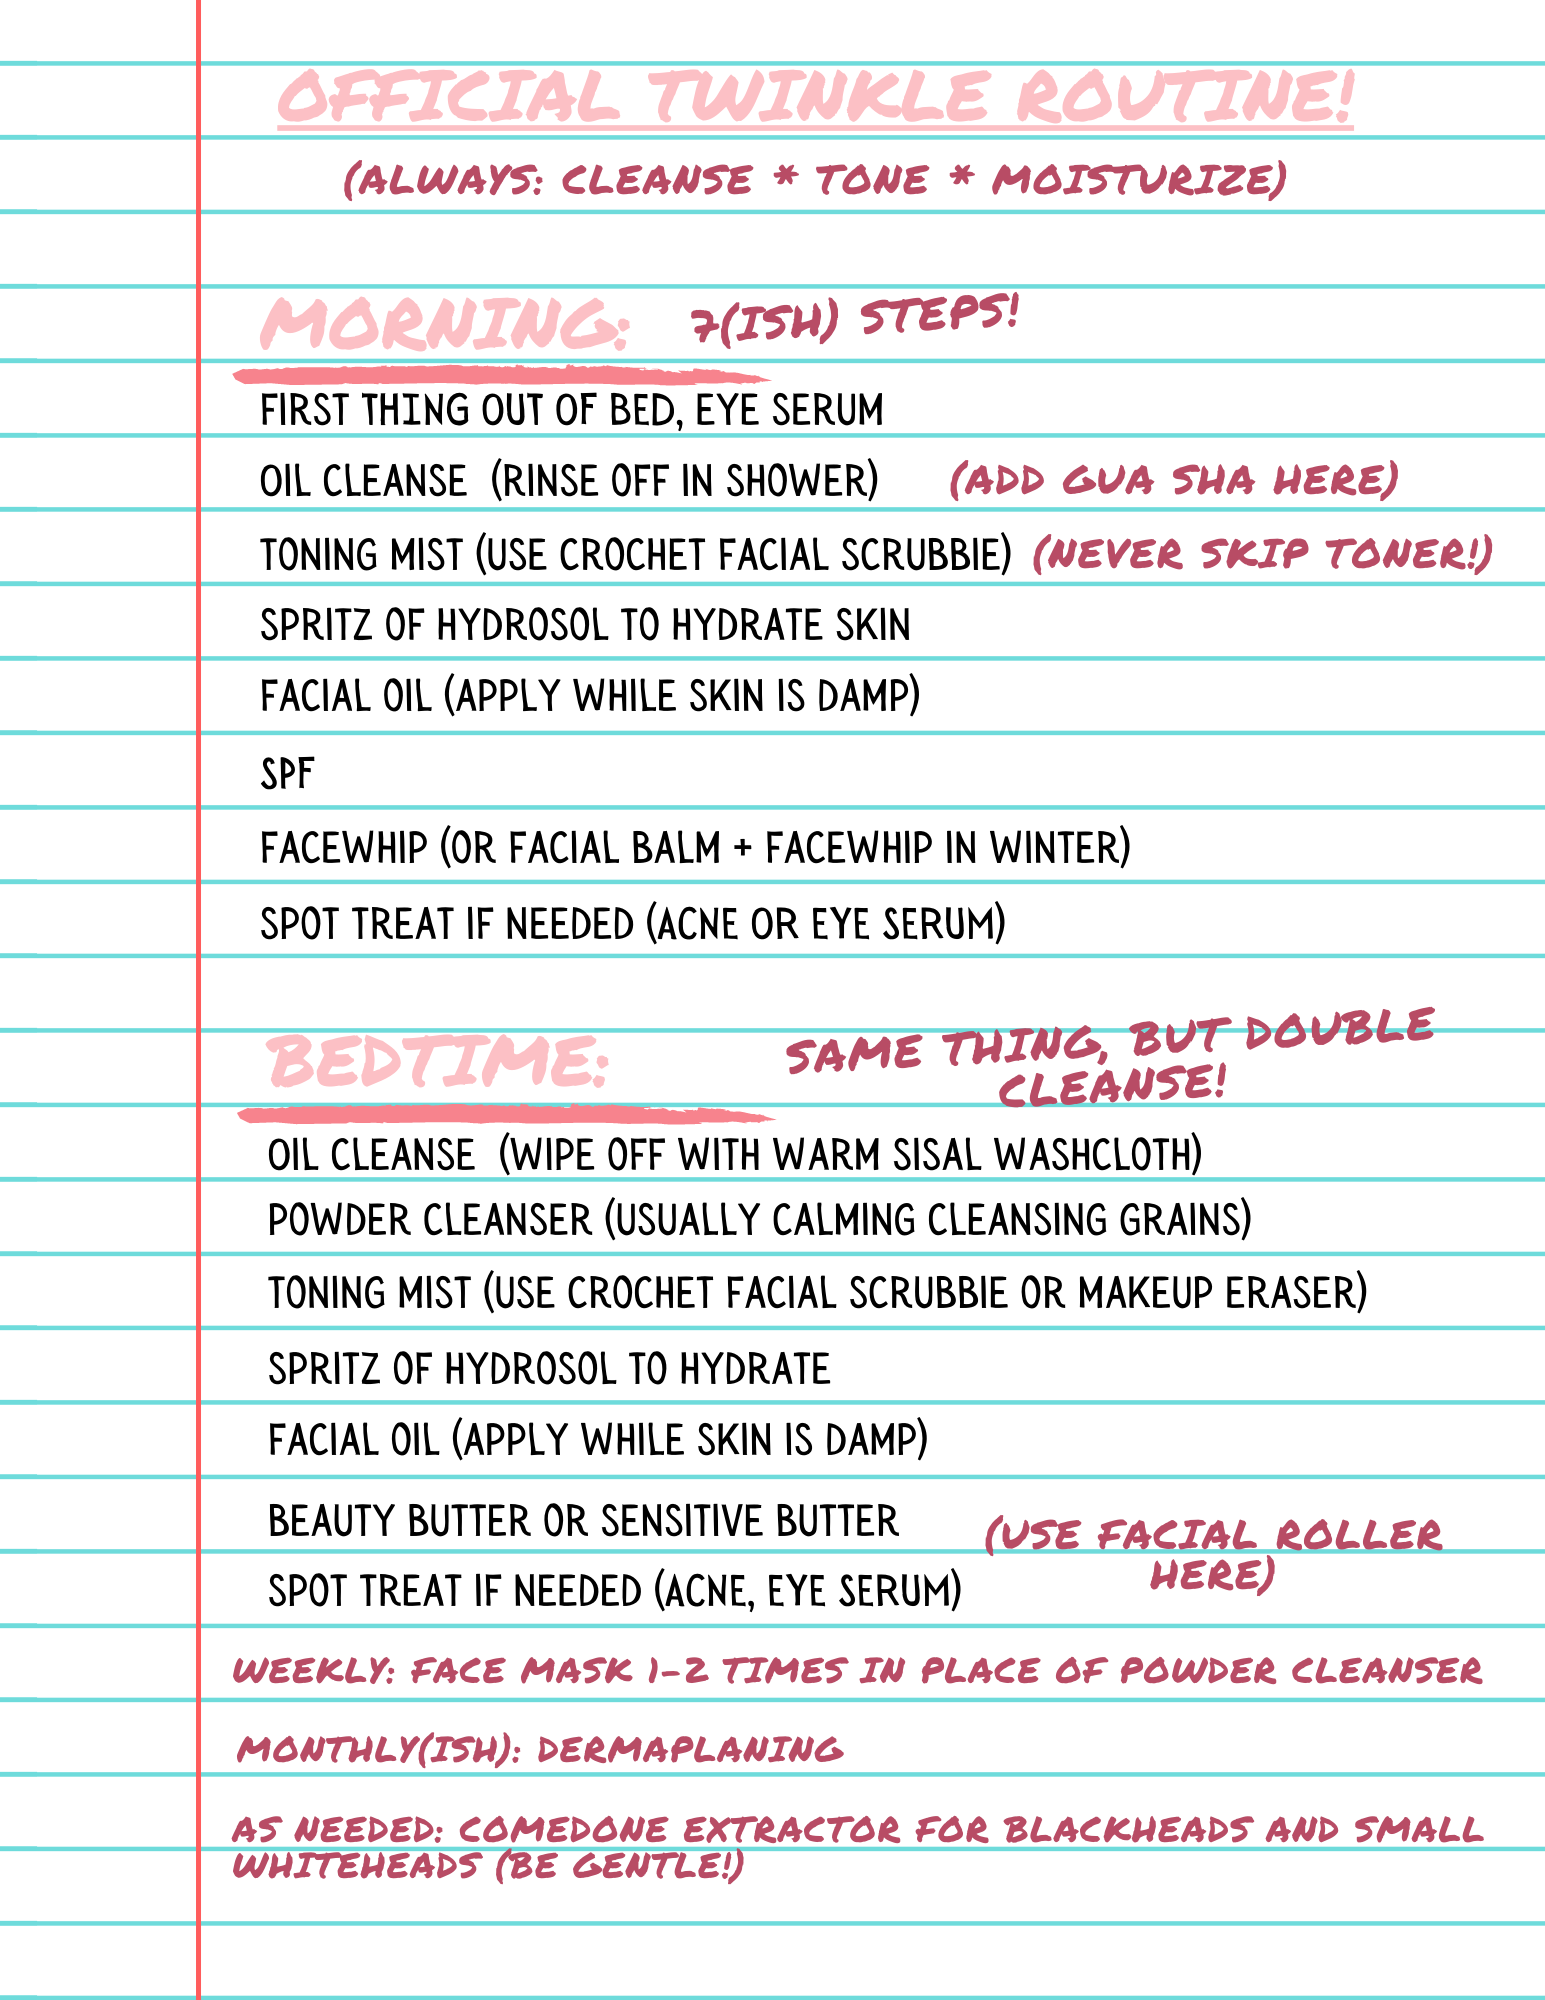 OFFICIAL TWINKLE ROUTINE!
(ALWAYS: CLEANSE * TONE * MOISTURIZE)
MORNING: 7(ISH) STEPS!
FIRST THING OUT OF BED, EYE SERUM
OIL CLEANSE (RINSE OFF IN SHOWER) (ADD GUA SHA HERE)
TONING MIST (USE CROCHET FACIAL SCRUBBIE) (NEVER SKIP TONER!)
SPRITZ OF HYDROSOL TO HYDRATE SKIN
FACIAL OIL (APPLY WHILE SKIN IS DAMP)
SPF
FACEWHIP (OR FACIAL BALM + FACEWHIP IN WINTER)
SPOT TREAT IF NEEDED (ACNE OR EYE SERUM)
BEDTIME:
SAME THING, BUT DOUBLE
CLEANSE!
OIL CLEANSE (WIPE OFF WITH WARM SISAL WASHCLOTH)
POWDER CLEANSER (USUALLY CALMING CLEANSING GRAINS)
TONING MIST (USE CROCHET FACIAL SCRUBBIE OR MAKEUP ERASER)
SPRITZ OF HYDROSOL TO HYDRATE
FACIAL OIL (APPLY WHILE SKIN IS DAMP)
BEAUTY BUTTER OR SENSITIVE BUTTER
(USE FACIAL ROLLER
HERE)
SPOT TREAT IF NEEDED (ACNE, EYE SERUM)
WEEKLY: FACE MASK 1-2 TIMES IN PLACE OF POWDER CLEANSER
MONTHLY(ISH): DERMAPLANING
AS NEEDED: COMEDONE EXTRACTOR FOR BLACKHEADS AND SMALL
WHITEHEADS (BE GENTLE!)